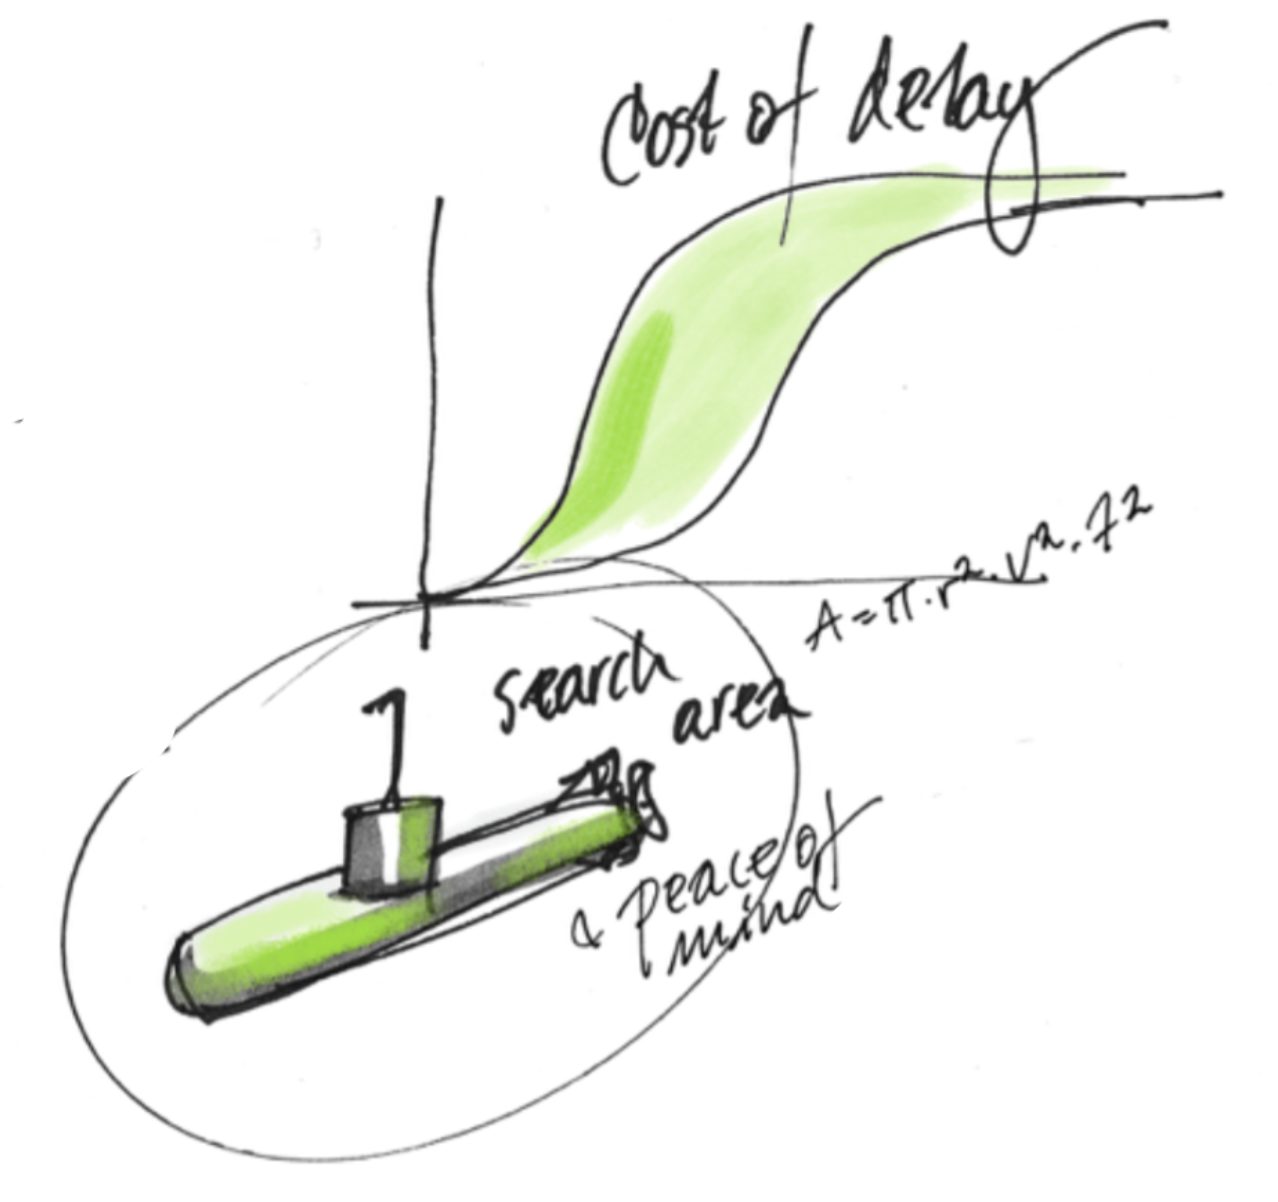 Cost of delay
A = π · r² · v² · t²
search
area
& peace of
mind